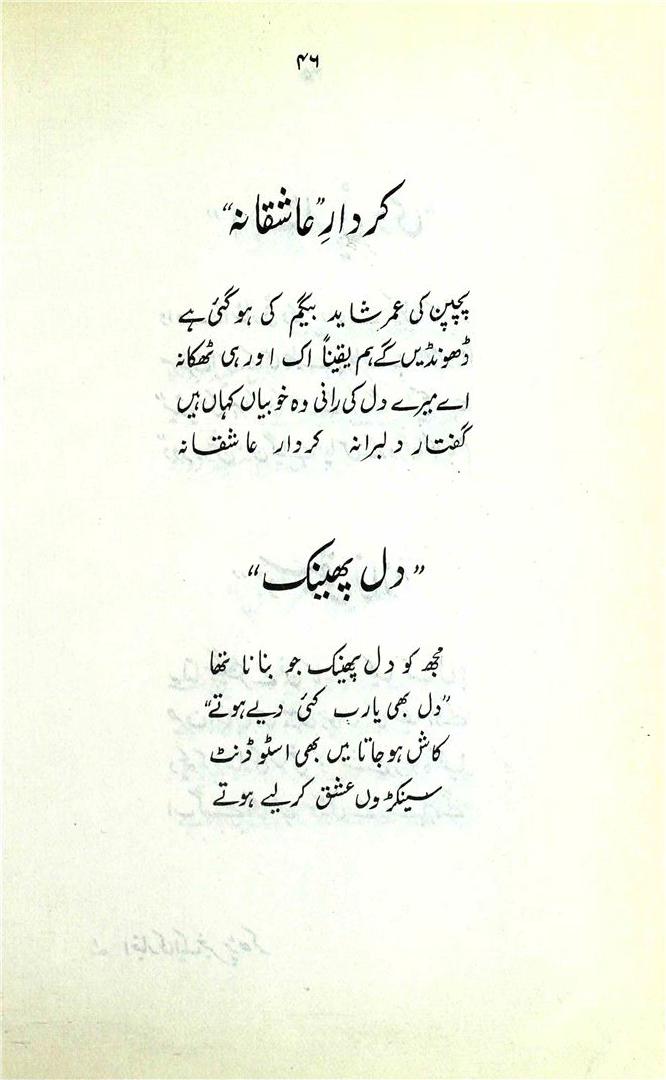 ۴۶
کردارِ "عاشقانہ"
پچپن کی عمر شاید بیگم کی ہوگئی ہے
ڈھونڈیں گے ہم یقیناً اک اور ہی ٹھکانہ
اے میرے دل کی رانی وہ خوبیاں کہاں ہیں
گفتار دلبرانہ کردار عاشقانہ
"دل پھینک"
مجھ کو دل پھینک جو بنانا تھا
"دل بھی یارب کئی دیے ہوتے"
کاش ہوجاتا میں بھی اسٹوڈنٹ
سینکڑوں عشق کرلیے ہوتے